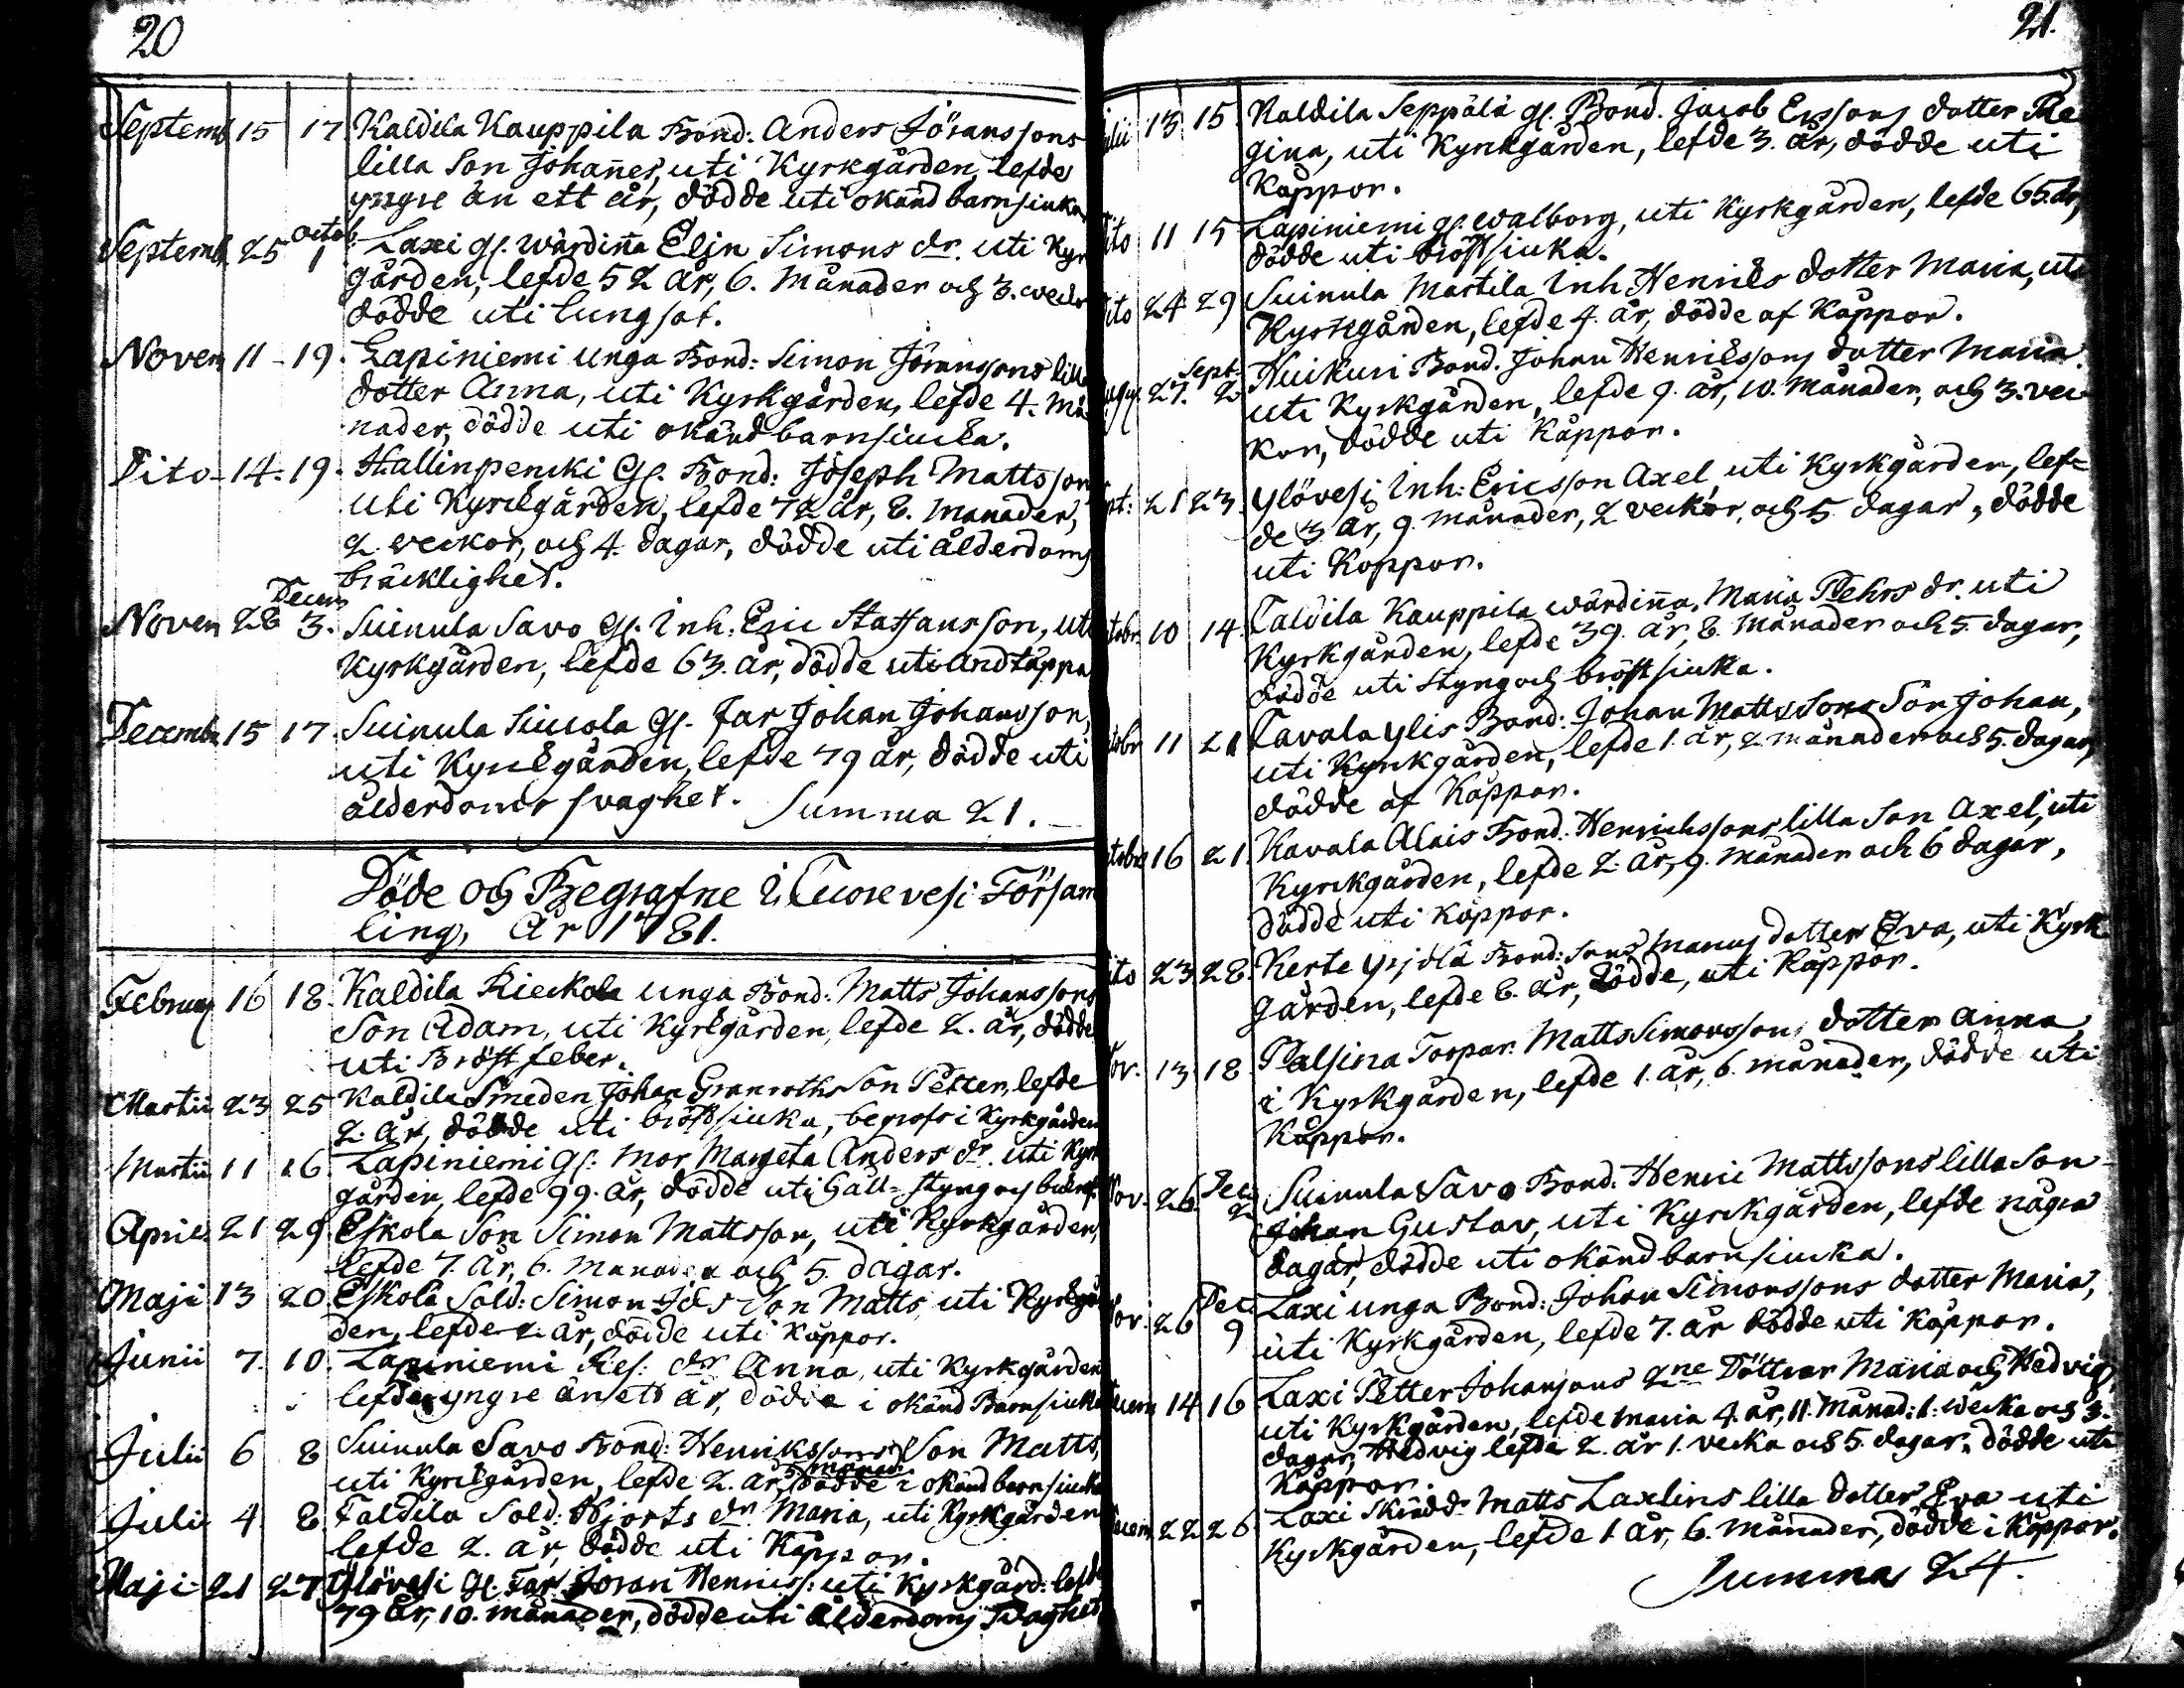 20
Septemb 15 17 Kaldila Kauppila Bond: Anders Jöranssons
lilla Son Johan̄es, uti Kyrkgården, lefde
yngre än ett år, dödde uti okänd barnsiuka
Septemb. 25 octob. 1 Laxi gl. wärdin̄a Elin Simons dr. uti Kyr
gården, lefde 52 år, 6. Månader och 3. weck
dödde uti Lungsot.
Novem 11 - 19. Lapiniemi unga Bond: Simon Jöranssons lilla
dotter Anna, uti Kyrkgården, lefde 4. Må
nader, dödde uti okänd barnsiuka.
Dito - 14 - 19. Hallinpenki Gl. Bond: Joseph Mattsson
uti Kyrkgården, lefde 72 år, 8. Månader,
2. Veckor, och 4 dagar, dödde uti ålderdoms
bräcklighet.
Novem 28 Decem 3. Suinula Savo gl. Inh. Eric Staffansson, uti
Kyrkgården, lefde 63. år, dödde uti andtäppa
Decembr 15 17. Suinula gl. far Johan Johansson,
uti Kyrkgården, lefde 79 år, dödde uti
ålderdoms svaghet. Summa 21.
Döde och Begrafne i Kuorevesi Försam
ling, År 1781.
Februar 16 18. Kaldila Rieckola unga Bond: Matts Johanssons
Son Adam, uti Kyrkgården, lefde 2. år, dödde
uti Bröstfeber.
Martii 23 25 Kaldila Smeden Johan Granroths Son Petter, lefde
2. År, dödde uti bröstsiuka, begrofs i Kyrkgården
Martii 11 16. Lapiniemi gl. Mor Margeta Anders dr. uti Kyrk
gården, lefde 99. år, dödde uti Håll-styng och
April 21 29. Eskola Son Simon Mattsson, uti Kyrkgården,
lefde 7. År, 6. Månader och 5. dagar.
Maji 13 20 Eskola Sold: Simon Son Matts, uti Kyrkgår
den, lefde 2. år, dödde uti Koppor.
Junii 7. 10. Lapiniemi dr. Anna, uti Kyrkgården
lefde yngre än ett år, dödde i okänd Barnsiuka
Julii 6 8 Suinula Savo Bond: Henrikssons Son Matts,
uti Kyrkgården, lefde 2. år, 5 månad. dödde i okänd barnsiuka
Julii 4. 8. Taldila Sold: Hjorts dr. Maria, uti Kyrkgården
lefde 2. år, dödde uti Koppor.
Maji 21 27 Ylövesi gl. Far Jöran Henriss: uti Kyrkgård: lefde
79 år, 10. Månader, dödde uti Ålderdoms Svaghet
21.
ulii 13 15. Kaldila Seppälä gl. Bond. Jacob Erssons dotter Re
gina, uti Kyrkgården, lefde 3. år, dödde uti
Koppor.
ito 11 15 Lapiniemi gl. Walborg, uti Kyrkgården, lefde 65. år,
dödde uti bröstsiuka.
ito 24 29 Suinula Martila Inh Henrics dotter Maria, uti
Kyrkgården, lefde 4. år, dödde af Koppor.
27. Sept. 2 Huikuri Bond. Johan Henrikssons dotter Maria
uti Kyrkgården, lefde 9. år, 10. Månader, och 3. vec
kor, dödde uti Koppor.
pt: 21 23. Ylövesi Inh: Ericsson Axel, uti Kyrkgården, lef=
de 3. år, 9. Månader, 2 veckor, och 5. dagar, dödde
uti Koppor.
tobr. 10 14. Taldila Kauppila wärdin̄a, Maria Pehrs dr. uti
Kyrkgården, lefde 39. år, 8. Månader och 5. dagar,
dödde uti styng och bröstsiuka.
tobr 11 21 Tavala Ylis Bond: Johan Mattssons Son Johan,
uti Kyrkgården, lefde 1. år, 2. Månader och 5. dagar,
dödde af Koppor.
tobr 16 21. Kavala Alais Bond: Henrichssons lilla Son Axel, uti
Kyrkgården, lefde 2. år, 9. Månader och 6 dagar,
dödde uti Koppor.
ito 23 28. Kerte Yrjölä Bond: Sons dotter Eva, uti Kyrk
gården, lefde 8. år, dödde, uti Koppor.
ov. 13 18 Palsina Torpar: Matts Simonssons dotter Anna,
i Kyrkgården, lefde 1. år, 6. Månader, dödde uti
Koppor.
Nov. 26. Dec. 2 Suinula Savo Bond: Henric Mattssons lilla Son
Johan Gustav, uti Kyrkgården, lefde några
dagar, dödde uti okänd barnsiuka.
ov. 26 Dec. 9 Laxi unga Bond: Johan Simonssons dotter Maria,
uti Kyrkgården, lefde 7. år dödde uti Koppor.
cem 14 16 Laxi Petter Johanssons 2ne Döttrar Maria och Hedvig,
uti Kyrkgården, lefde Maria 4. år, 11. Månad: 1. wecka och 3.
dagar, Hedvig lefde 2. år 1. vecka och 5. dagar, dödde uti
Koppor.
cem 22 26 Laxi Skrädd. Matts Laxlins lilla dotter Eva uti
Kyrkgården, lefde 1 år, 6. Månader, dödde i Koppor.
Summa 24.